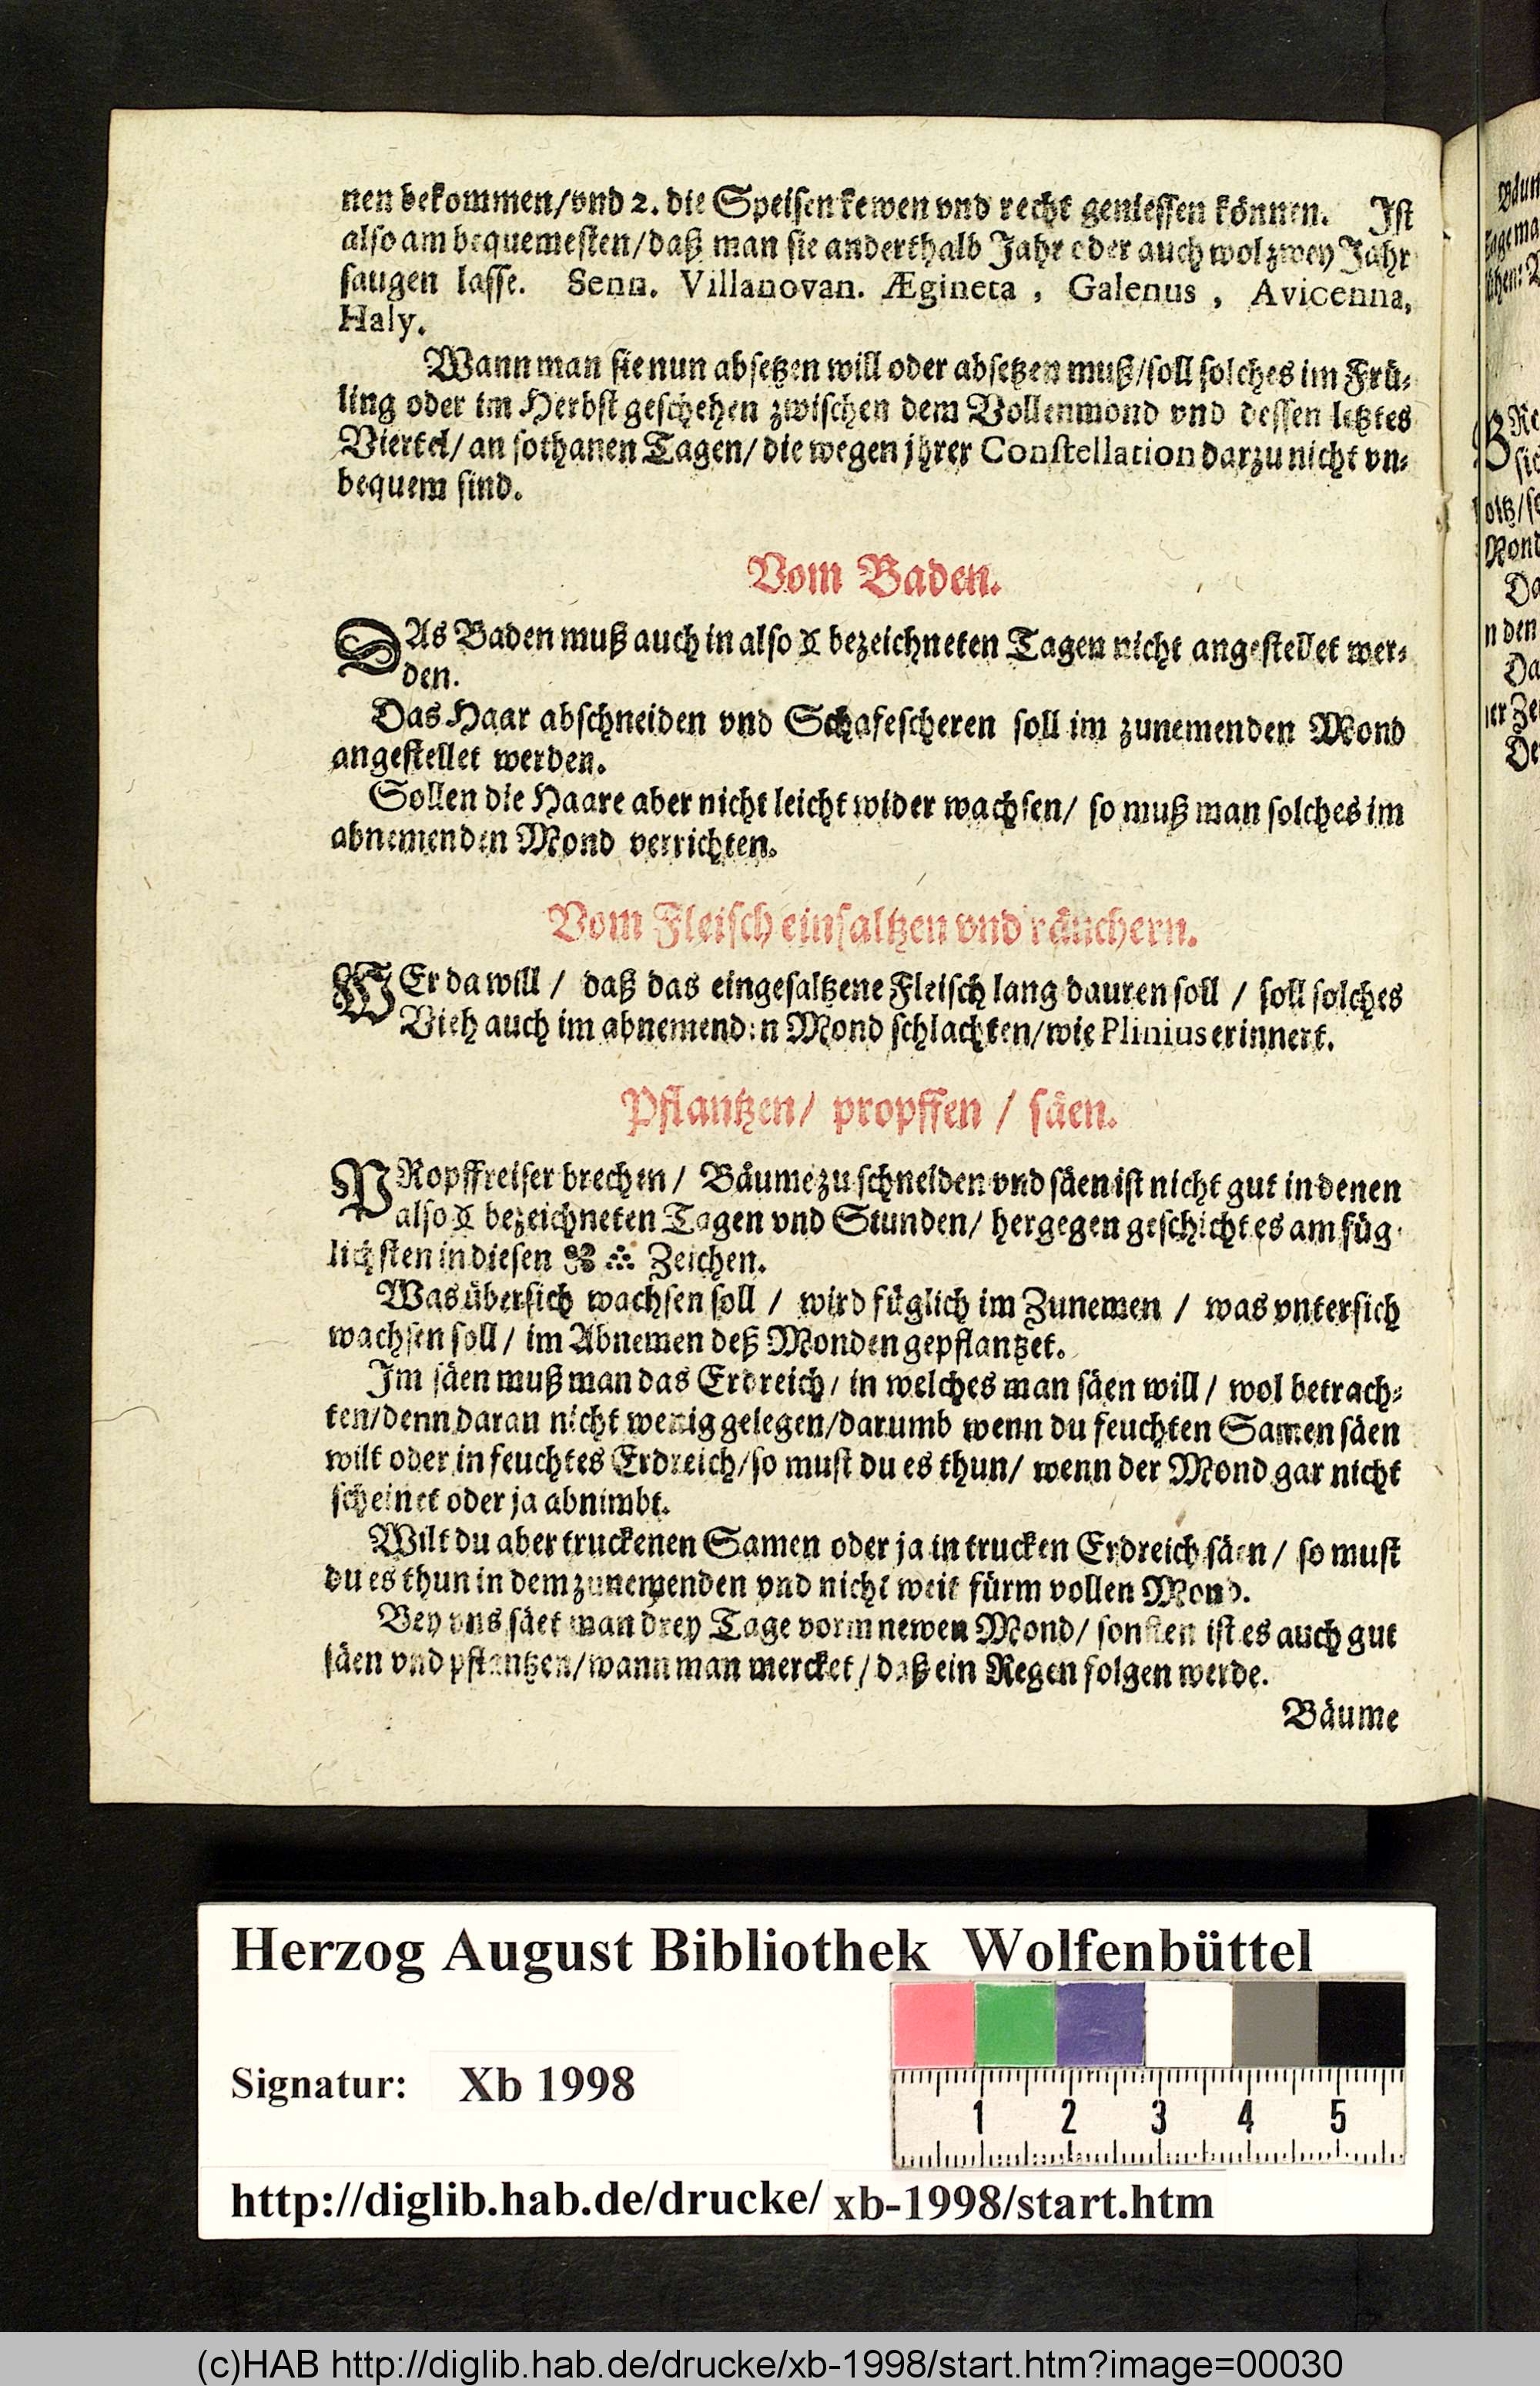 nen bekommen/vnd 2. die Speisen kewen vnd recht geniessen können. Ist
also am bequemesten/daß man sie anderthalb Jahr oder auch wol zwey Jahr
saugen lasse. Senn. Villanovan. Ægineta, Galenus, Avicenna,
Haly.
Wann man sie nun absetzen will oder absetzen muß/soll solches im Frü-
ling oder im Herbst geschehen zwischen dem Vollenmond vnd dessen letztes
Viertel/ an sothanen Tagen/ die wegen jhrer Constellation darzu nicht vn-
bequem sind.
Vom Baden.
DAs Baden muß auch in also bezeichneten Tagen nicht angestellet wer-
den.
Das Haar abschneiden vnd Schafescheren soll im zunemenden Mond
angestellet werden.
Sollen die Haare aber nicht leicht wider wachsen/ so muß man solches im
abnemenden Mond verrichten.
Vom Fleisch einsaltzen vnd räuchern.
WEr da will / daß das eingesaltzene Fleisch lang dauren soll / soll solches
Vieh auch im abnemenden Mond schlachten/wie Plinius erinnert.
Pflantzen/ propffen / säen.
PRopffreiser brechen / Bäume zu schneiden vnd säen ist nicht gut in denen
also bezeichneten Tagen vnd Stunden/ hergegen geschicht es am füg-
lichsten in diesen Zeichen.
Was übersich wachsen soll / wird füglich im Zunemen / was vntersich
wachsen soll / im Abnemen deß Monden gepflantzet.
Im säen muß man das Erdreich/ in welches man säen will / wol betrach-
ten/denn daran nicht wenig gelegen/darumb wenn du feuchten Samen säen
wilt oder in feuchtes Erdreich/so must du es thun/ wenn der Mond gar nicht
scheinet oder ja abnimbt.
Wilt du aber truckenen Samen oder ja in trucken Erdreich säen / so must
du es thun in dem zunemenden vnd nicht weit fürm vollen Mond.
Bey vns säet man drey Tage vorm newen Mond/ sonsten ist es auch gut
säen vnd pflantzen/wann man mercket / daß ein Regen folgen werde.
Bäume
Herzog August Bibliothek Wolfenbüttel
Signatur: Xb 1998
1 2 3 4 5
http://diglib.hab.de/drucke/ xb-1998/start.htm
(c)HAB http://diglib.hab.de/drucke/xb-1998/start.htm?image=00030